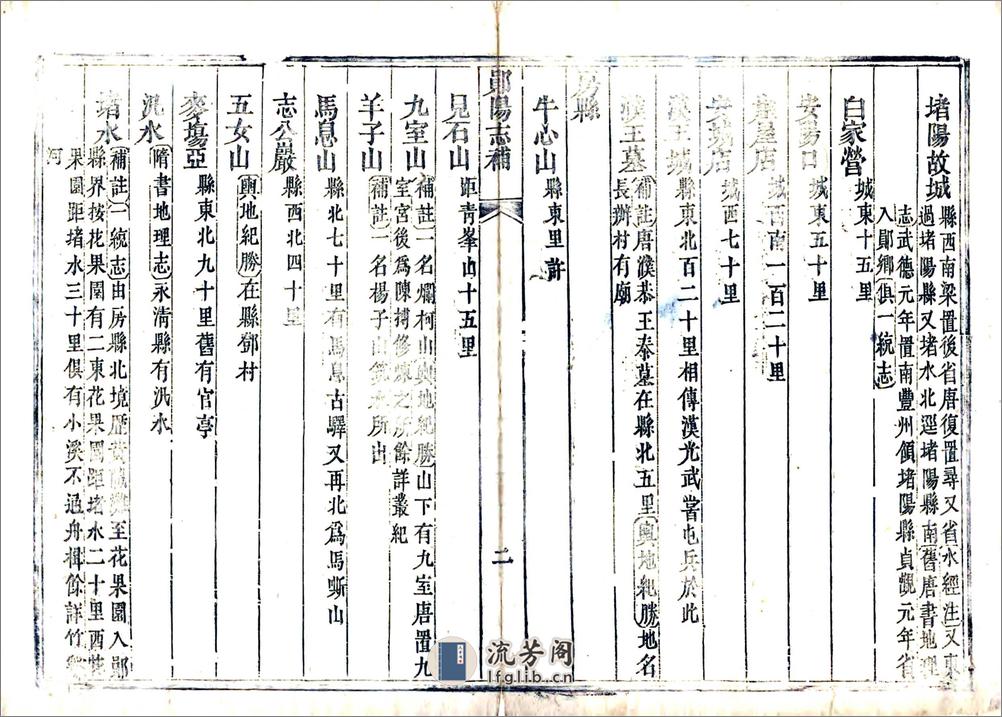 堵陽故城縣西南梁置後省唐復置尋又省水經注又東
過堵陽縣又堵水北逕堵陽縣南舊唐書地理
志武德元年置南豐州領堵陽縣貞觀元年省
入鄖鄉俱一統志
白家營城東十五里
安陽口城東五十里
店城西南一百二十里
安陽店城西七十里
漢王城縣東北百二十里相傳漢光武嘗屯兵於此
濮王墓補註唐濮恭王泰墓在縣北五里輿地紀勝地名
長辦村有廟
房縣
牛心山縣東里許
鄖陽志補
二
見石山距青峯山十五里
九室山補註一名爛柯山輿地紀勝山下有九室唐置九
室宮後爲陳摶修煉之所餘詳叢紀
羊子山補註一名楊子山筑水所出
馬息山縣北七十里有馬息古驛又再北爲馬嘶山
志公巖縣西北四十里
五女山輿地紀勝在縣鄧村
麥塲亞縣東北九十里舊有官亭
汎水隋書地理志永清縣有汎水
堵水補註一統志由房縣北境歷黃茂灘至花果園入鄖
縣界按花果園有二東花果園距堵水二十里西花
果園距堵水三十里俱有小溪不通舟楫餘詳竹谿
河
流芳阁
lfglib.cn